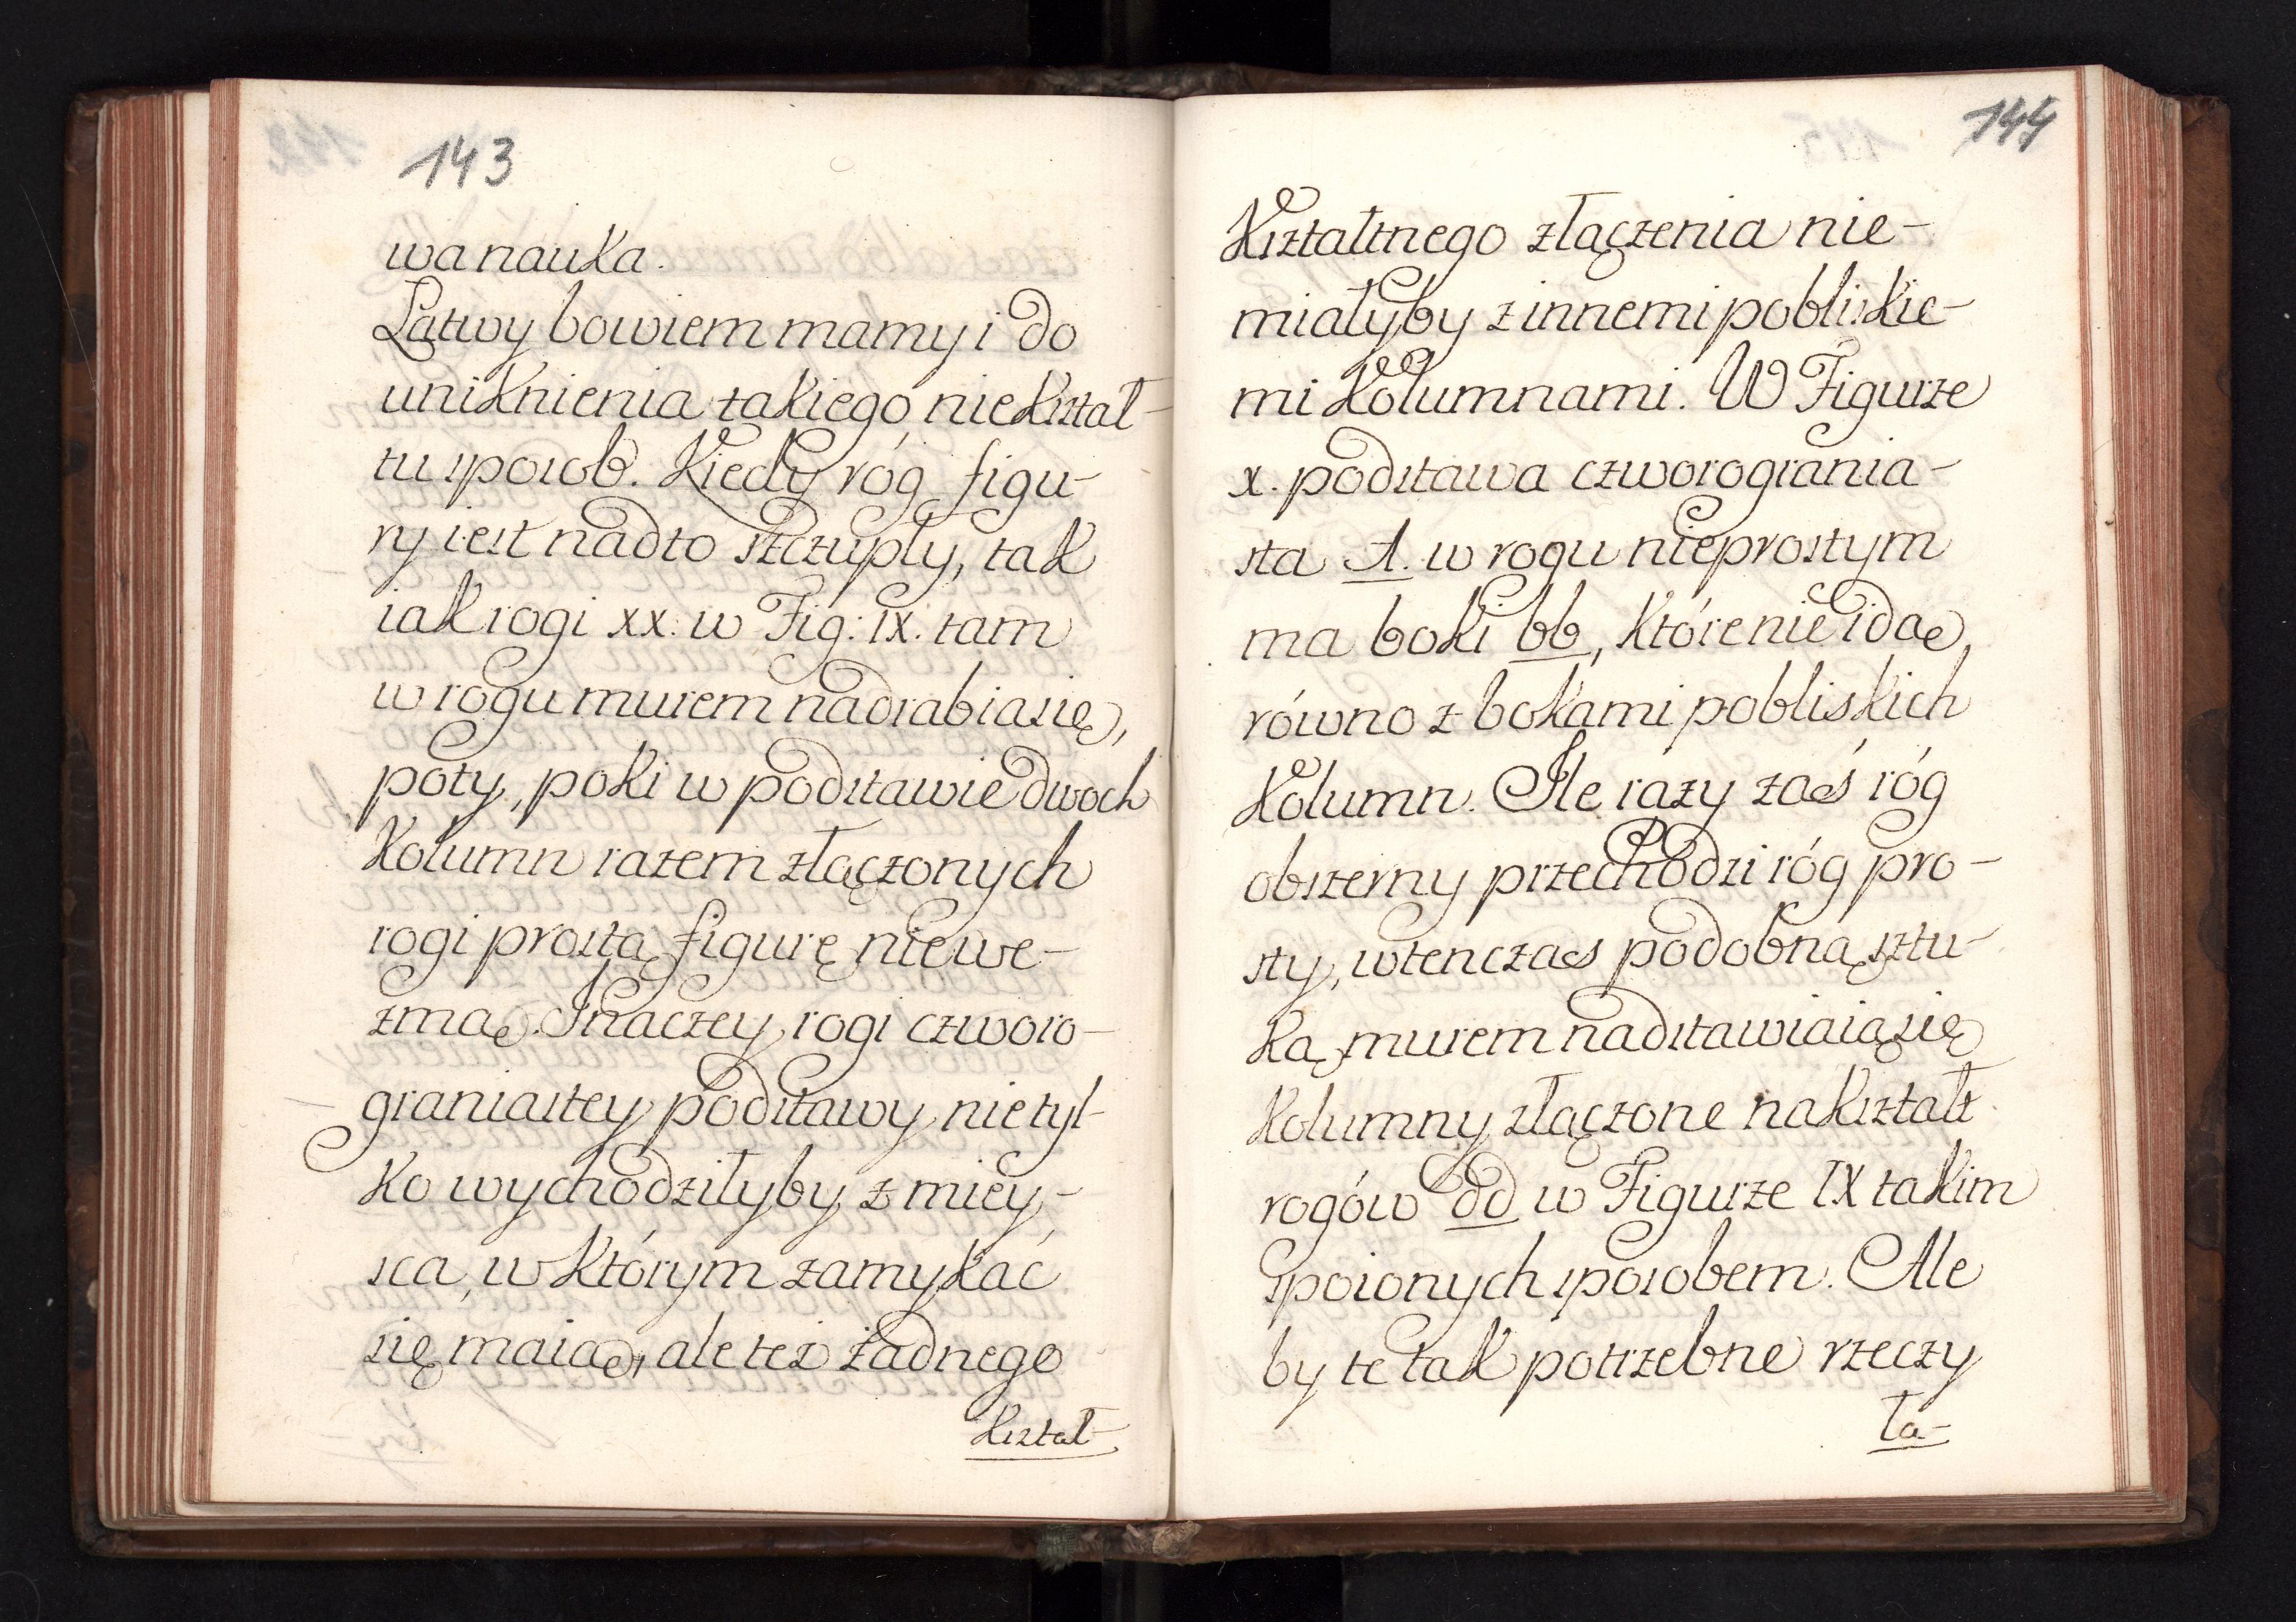 143
wa nauka.
Łatwy bowiem mamy i do
uniknienia takiego niekształ-
tu sposob. Kiedy róg figu-
ry iest nadto szczupły, tak
iak rogi xx. w Fig: IX. tam
w rogu murem nadrabia się,
poty, poki w podstawie dwoch
Kolumn razem złączonych
rogi prostą figurę niewe-
zmą. Inaczey rogi czworo-
graniastey podstawy nietyl-
ko wychodziłyby z miey-
sca, w którym zamykać
się maią, ale też żadnego
Kształ-
144
Kształtnego złączenia nie-
miałyby z innemi pobliskie-
mi Kolumnami. W Figurze
x. podstawa czworogrania-
sta A. w rogu nieprostym
ma boki bb, które nie idą
równo z bokami pobliskich
Kolumn. Ile razy zaś róg
obszerny przechodzi róg pro-
sty, wtenczas podobną sztu-
ką murem nadstawiaią się
Kolumny złączone nakształt
rogów dd w Figurze IX takim
spoionych sposobem. Ale
by te tak potrzebne rzeczy
ła-